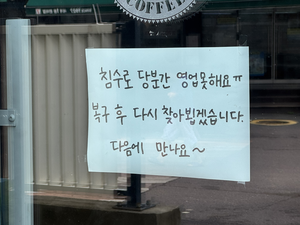 COFFEE
침수로 당분간 영업못해요ㅠ
복구 후 다시 찾아뵙겠습니다.
다음에 만나요~